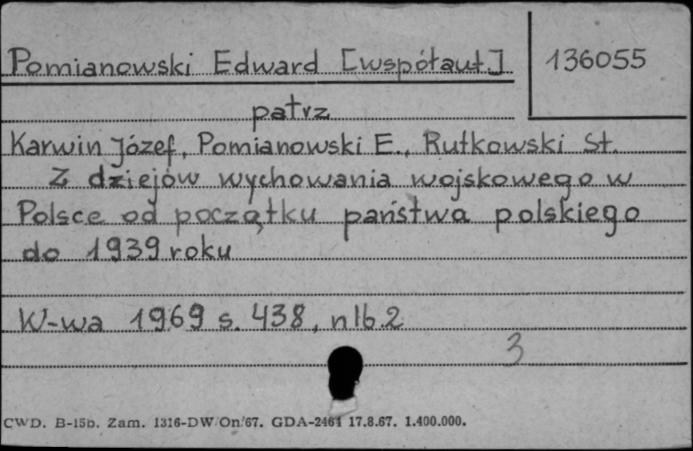 Pomianowski Edward [współaut.]
136055
patrz
Karwin Józef, Pomianowski E., Rutkowski St.
Z dziejów wychowania wojskowego w
Polsce od początku państwa polskiego
do 1939 roku
W-wa 1969 s. 438, nlb. 2
3
CWD. B-15b. Zam. 1316-DW/On/67. GDA-2464 17.8.67. 1.400.000.